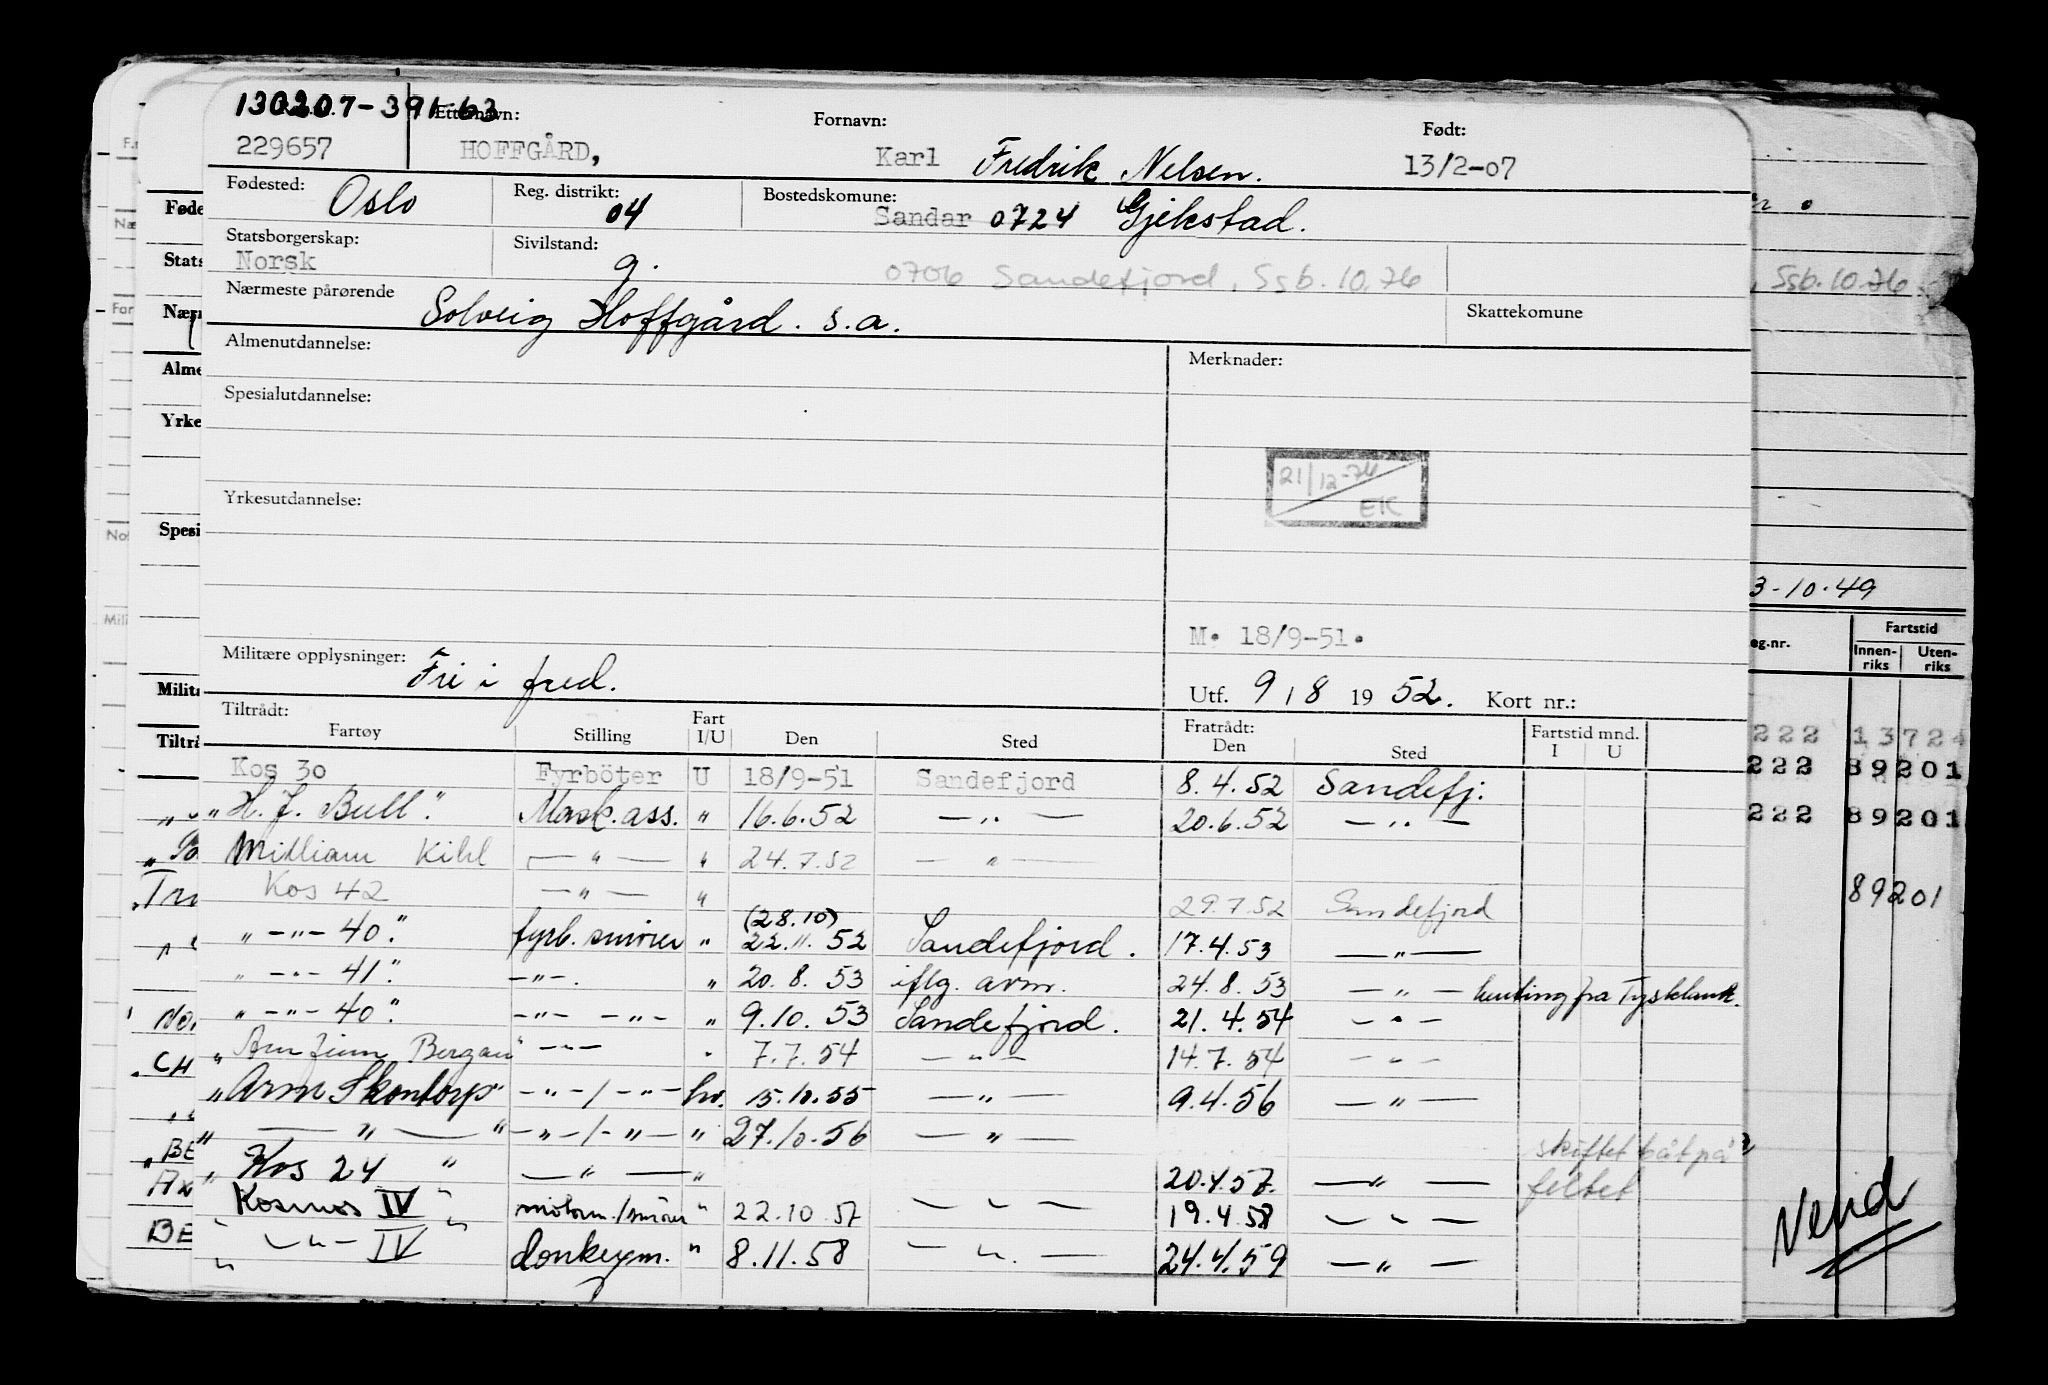 130207-391-63
Etternavn: Fornavn: Født:
229657 HOFFGÅRD, Karl Fredrik Nelsen. 13/2-07
Fødested: Oslo Reg. distrikt: 04 Bostedskomune: Sandar 0724 Gjekstad.
Statsborgerskap: Norsk Sivilstand: g. 0706 Sandefjord, Ssb. 10.76
Nærmeste pårørende Solveig Hoffgård. s.a. Skattekomune
Almenutdannelse: Merknader:
Spesialutdannelse:
21/12-74
EK
Yrkesutdannelse:
M. 18/9-51.
Militære opplysninger: Fri i fred.
Utf. 9/8 1952. Kort nr.:
Tiltrådt: Fratrådt:
Fartøy Stilling Fart I/U Den Sted Den Sted Fartstid mnd. I U
Kos 30 Fyrböter U 18/9-51 Sandefjord 8.4.52 Sandefj.
"H. J. Bull". Mask.ass. " 16.6.52 — " — 20.6.52 — " —
William Kihl — " — " 24.7.52 — " —
Kos 42 — " — " 29.7.52 Sandefjord
" — " — 40". fyrb. smører " (28.10) 22.11.52 Sandefjord. 17.4.53 — " —
" — " — 41". — " — . " 20.8.53 iflg. arm. 24.8.53 — " — henting fra Tyskland.
" — " — 40". — " — — " — " 9.10.53 Sandefjord. 21.4.54 — " —
" Bergan" — " — " 7.7.54 — " — 14.7.54 — " —
"Arm Skontorp" — " — / — " — hv. 15.10.55 — " — 9.4.56 — " —
" — " — " — " — / — " — " 27.10.56 — " —
" Kos 24 " — " — " 20.4.57. — " — skiftet båt på feltet
" Kosmos IV " motorm./smører " 22.10.57 — " — 19.4.58 — " —
" — " — IV " donkeym. " 8.11.58 — " — 24.4.59 — " —
, Ssb. 10.76
3-10.49
Fartstid
Innenriks Utenriks
222 13724
222 89201
222 89201
89201
Vend